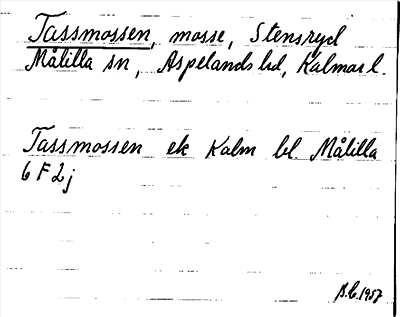 Tassmossen, mosse, Stensryd
Målilla sn, Aspelands hd, Kalmar l.
Tassmossen ek Kalm bl Målilla
6 F 2 j
B.C. 1957